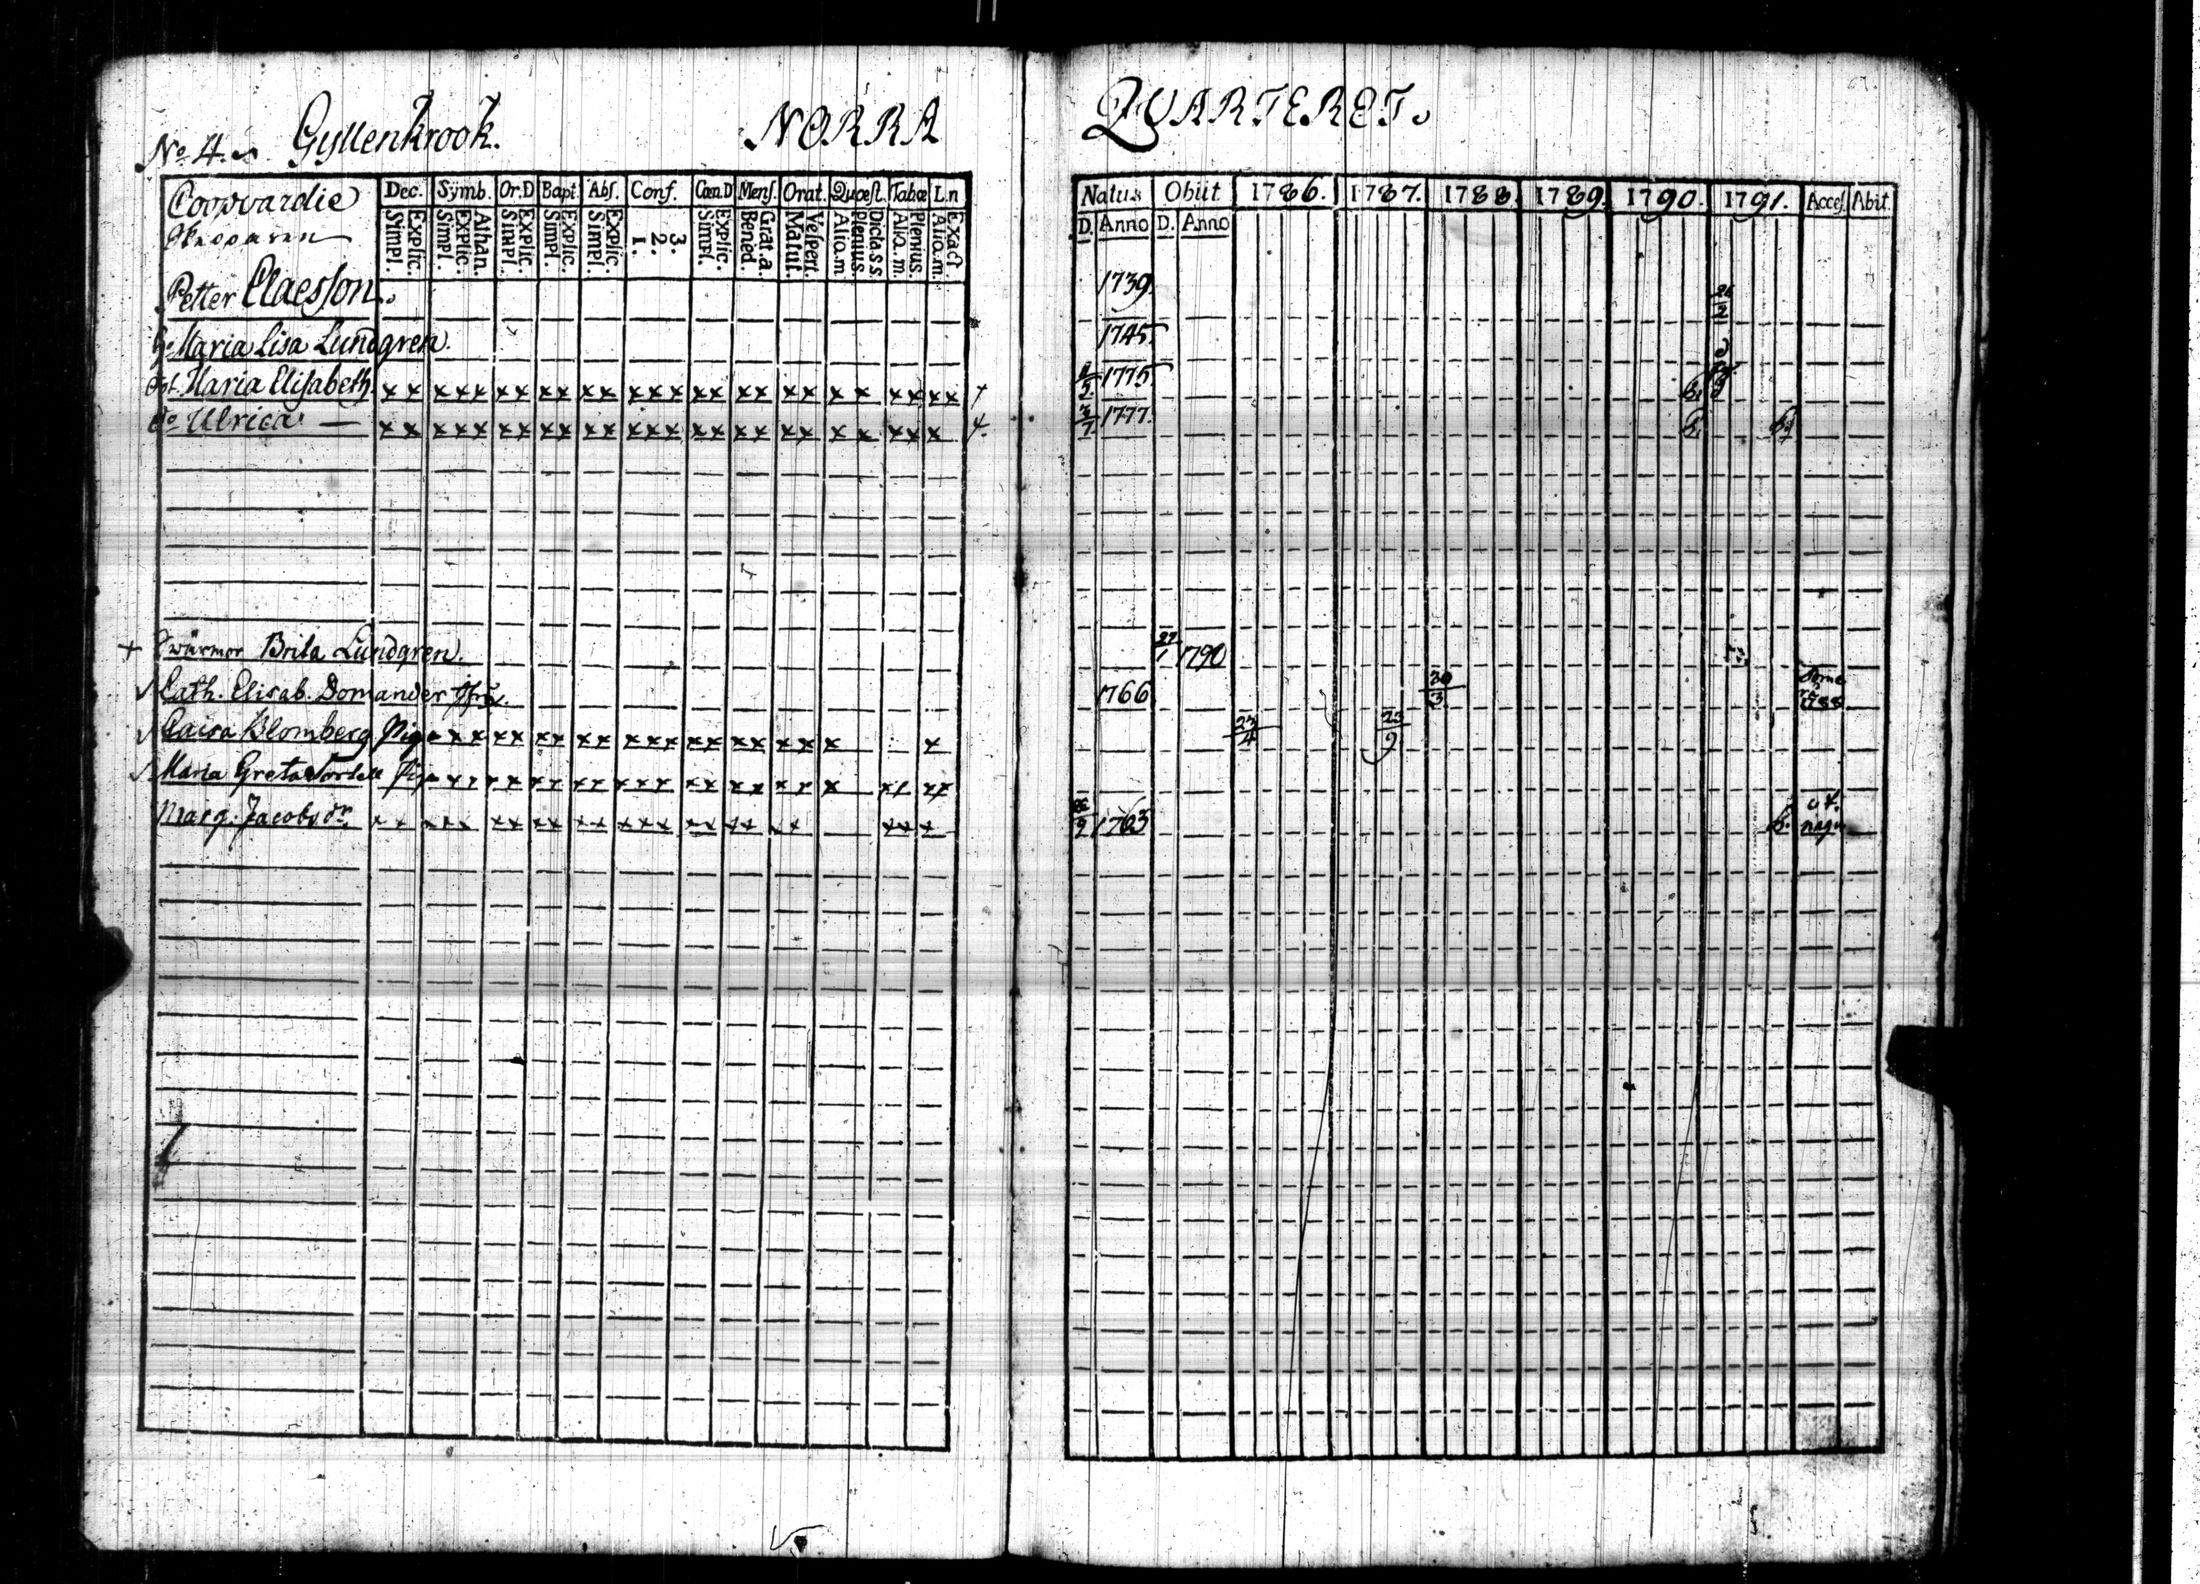 No 4. Gyllenkrook. NORRA QUARTERET.
Coopvardie Dec. Symb. Or.D Bapt. Abs. Conf. Cœn.D Mens. Orat. Quæst. Tabœ L.n
Skepparen
Simpl. Explic. Simpl. Explic. Athan. Simpl. Explic. Simpl. Explic. Simpl. Explic. 1. 2. 3. Simpl. Explic. Bened. Grat.a. Matut. Vespert. Alio.m. plenius. Dicta s s. Alio.m. Plenius. Alio.m. Exact
Natus Obiit 1786. 1787. 1788. 1789. 1790. 1791. Acces. Abit
D. Anno D. Anno
Petter Claesson. 1739.
h. Maria Lisa Lundgren. 1745.
Maria Elisabeth. x x x x x x x x x x x x x x x x x x x x x x x x x 1775.
do Ulrica x x x x x x x x x x x x x x x x x x x x x x x x 1777.
+ Swärmor Brita Lundgren. 27/1 1790
Cath. Elisab. Domander Jfru. 1766 30/3 1788
Caisa Blomberg Pig x x x x x x x x x x x x x x x x x x x 23/4 23/9
Maria Greta
Marg. Jacobsdr. x x x x x x x x x x x x x x x x x x x x x x x 1763